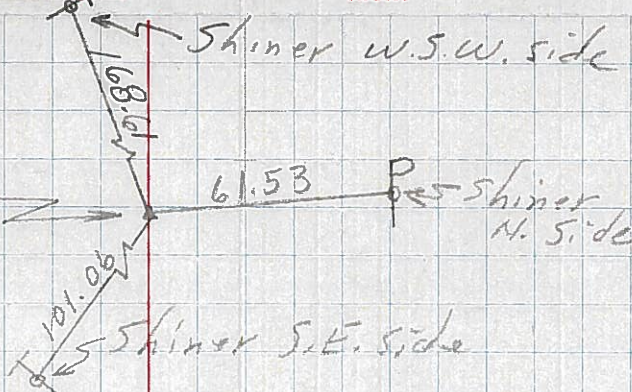 Shiner W.S.W. side
168.61
61.53
P
Shiner
N. Side
101.06
Shiner S.E. side